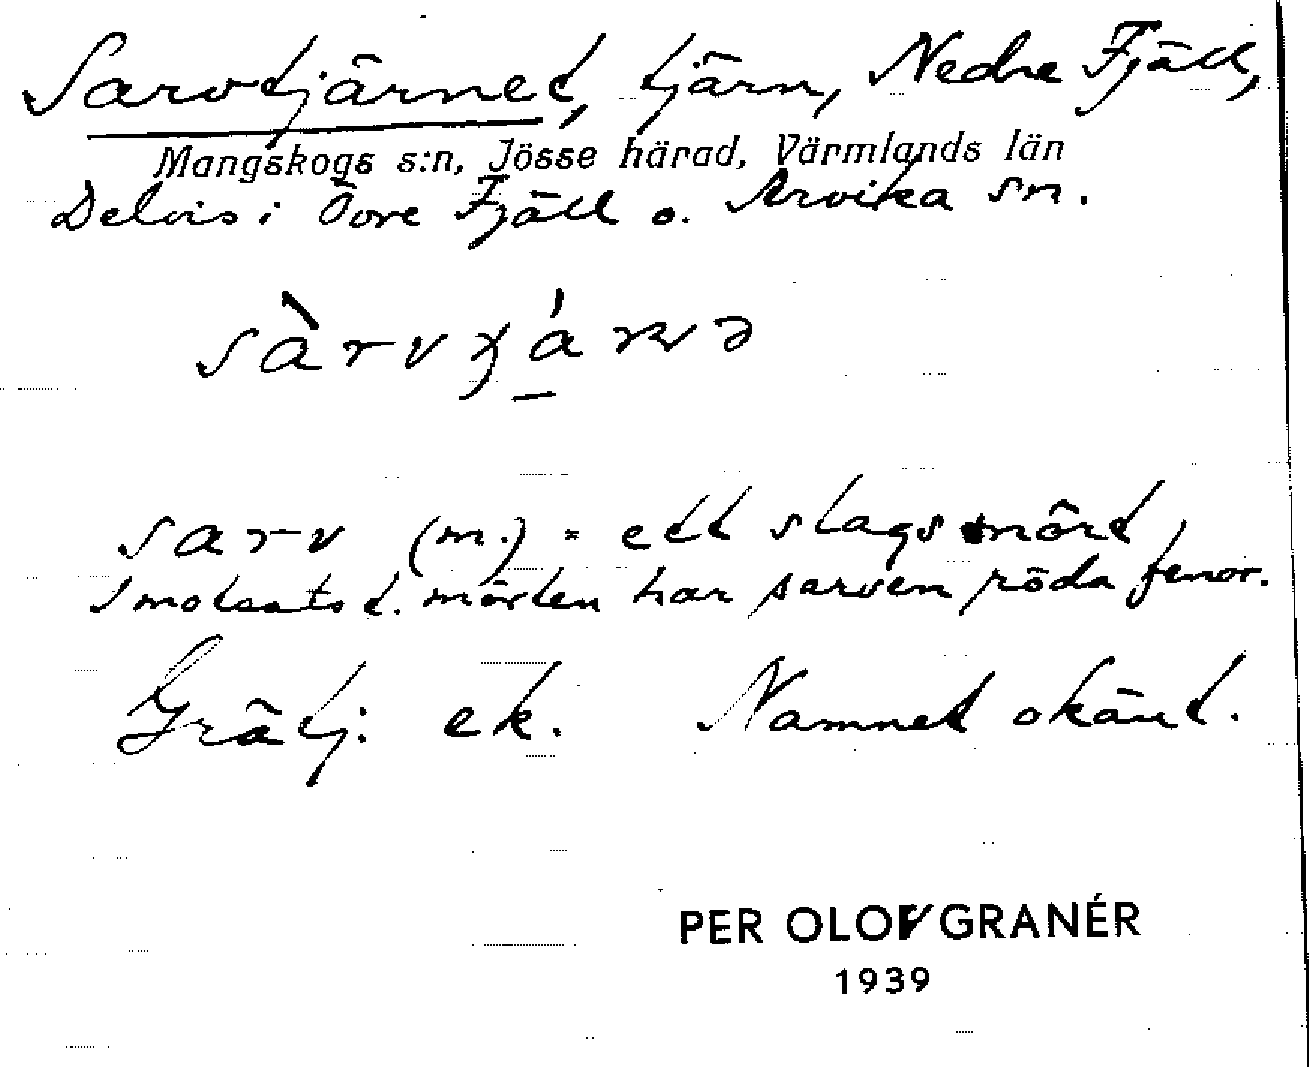 Sarvtjärnet, tjärn, Nedre Fjäll,
Mangskogs s:n, Jösse härad, Värmlands län
Delvis i Övre Fjäll o. Arvika sn.
sarv (m.) = ett slags mört,
I motsats t. mörten har sarven röda fenor.
Gråtj: ek. Namnet okänt.
PER OLOV GRANÉR
1939